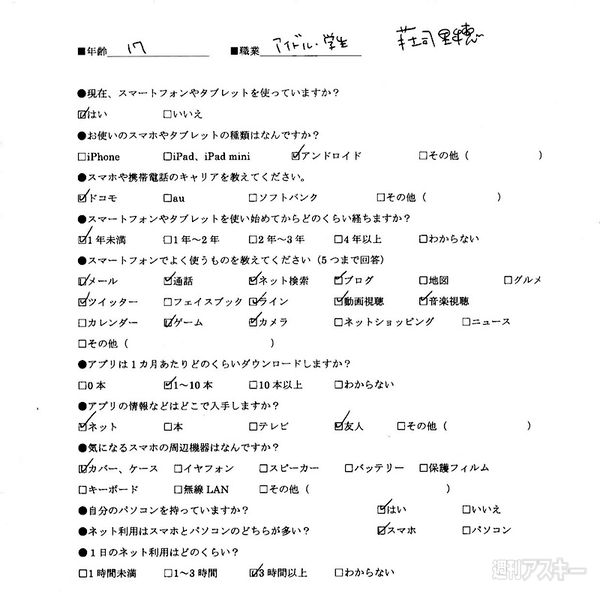 ■年齢 17 ■職業 アイドル・学生 荘司里穂
●現在、スマートフォンやタブレットを使っていますか？
☑はい □いいえ
●お使いのスマホやタブレットの種類はなんですか？
□iPhone □iPad、iPad mini ☑アンドロイド □その他（ ）
●スマホや携帯電話のキャリアを教えてください。
☑ドコモ □au □ソフトバンク □その他（ ）
●スマートフォンやタブレットを使い始めてからどのくらい経ちますか？
☑1年未満 □1年～2年 □2年～3年 □4年以上 □わからない
●スマートフォンでよく使うものを教えてください（5つまで回答）
☑メール ☑通話 ☑ネット検索 ☑ブログ □地図 □グルメ
☑ツイッター □フェイスブック ☑ライン ☑動画視聴 ☑音楽視聴
□カレンダー ☑ゲーム ☑カメラ □ネットショッピング □ニュース
□その他（ ）
●アプリは1カ月あたりどのくらいダウンロードしますか？
□0本 ☑1～10本 □10本以上 □わからない
●アプリの情報などはどこで入手しますか？
☑ネット □本 □テレビ ☑友人 □その他（ ）
●気になるスマホの周辺機器はなんですか？
☑カバー、ケース □イヤフォン □スピーカー □バッテリー □保護フィルム
□キーボード □無線LAN □その他（ ）
●自分のパソコンを持っていますか？ ☑はい □いいえ
●ネット利用はスマホとパソコンのどちらが多い？ ☑スマホ □パソコン
●1日のネット利用はどのくらい？
□1時間未満 □1～3時間 ☑3時間以上 □わからない
週刊アスキー